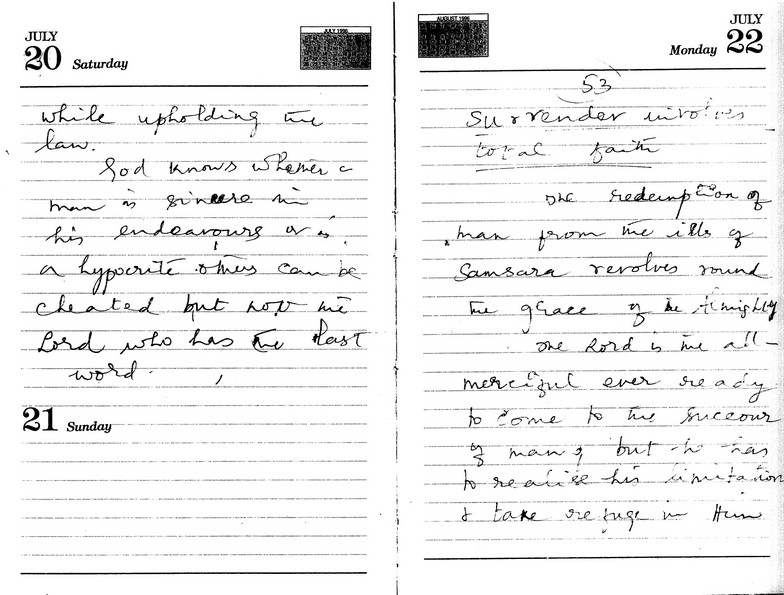 JULY
20 Saturday
JULY 1996
while upholding the
law.
God knows whether a
man is sincere in
his endeavours or is
a hypocrite others can be
cheated but not the
Lord who has the last
word.
21 Sunday
AUGUST 1996
JULY
Monday 22
53
Surrender involves
total faith
The redemption of
man from the ills of
Samsara revolves round
the grace of the Almighty
The Lord is the all-
merciful ever ready
to come to the succour
of man, but he has
to realise his limitation
& take refuge in Him